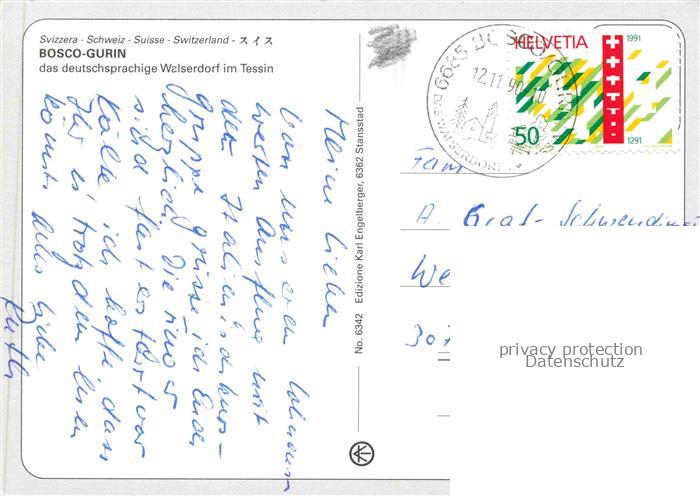 Svizzera - Schweiz - Suisse - Switzerland - スイス
BOSCO-GURIN
das deutschsprachige Walserdorf im Tessin
Meine Lieben
Von unserem
werten Ausflug mit
der Italienischkurs-
gruppe grüsse ich Euch
herzlich. Die
sind fast erstarrt vor
Kälte ich hoffe, dass
Ihr es trotzdem lesen
könnt. Alles Liebe
Ruth
No. 6342 Edizione Karl Engelberger, 6362 Stansstad
6685 BOSCO/GURIN
12.11.90
DAS WALSERDORF
HELVETIA
1991
50
1291
Fam
A. Graf-Schwendimann
We
307
privacy protection
Datenschutz